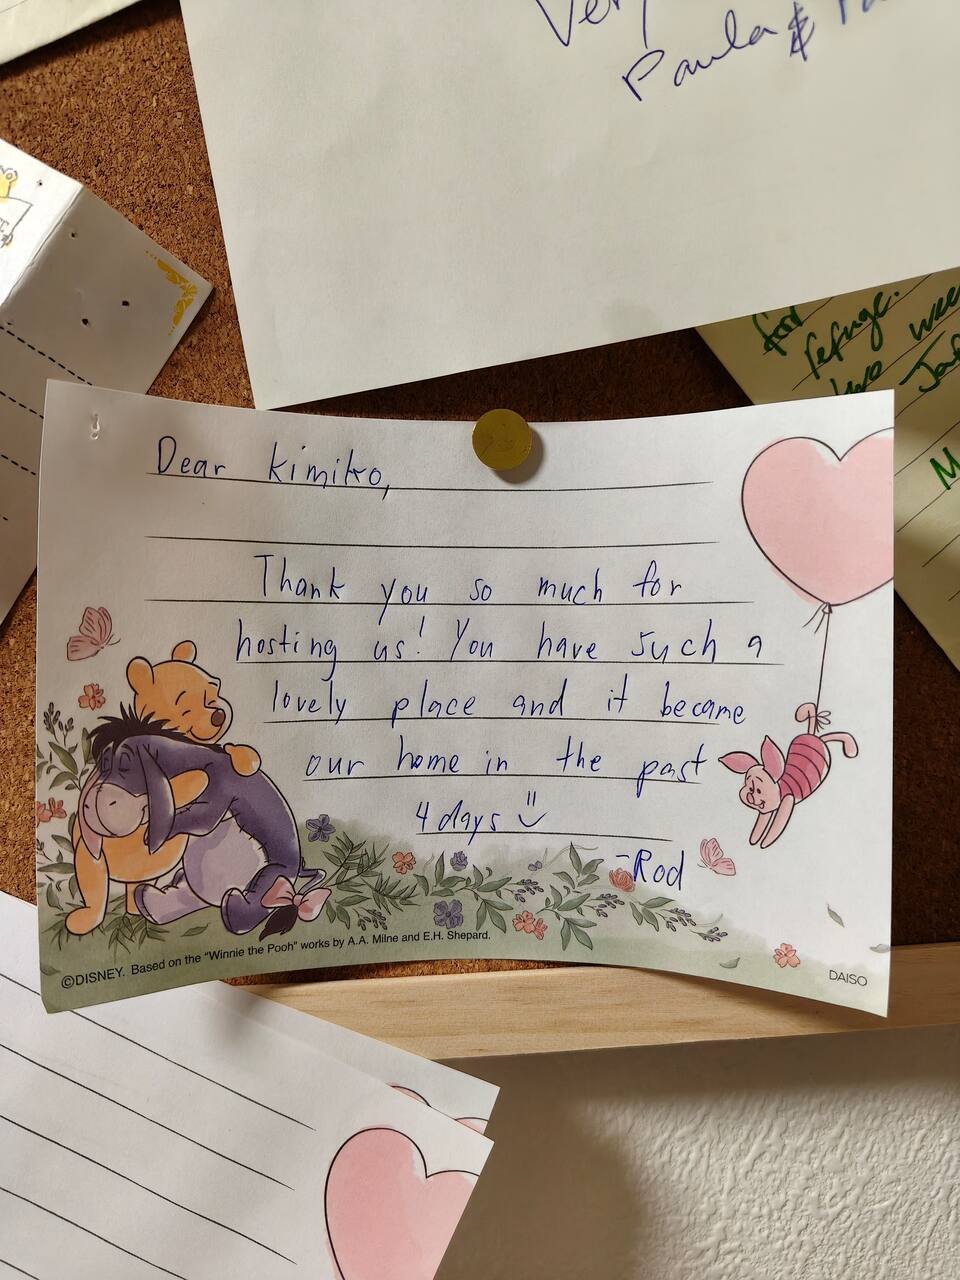 Very
Paula &
for
refuge.
two
Dear Kimiko,
Thank you so much for
hosting us! You have such a
lovely place and it became
our home in the past
4 days
-Rod
©DISNEY. Based on the "Winnie the Pooh" works by A.A. Milne and E.H. Shepard.
DAISO